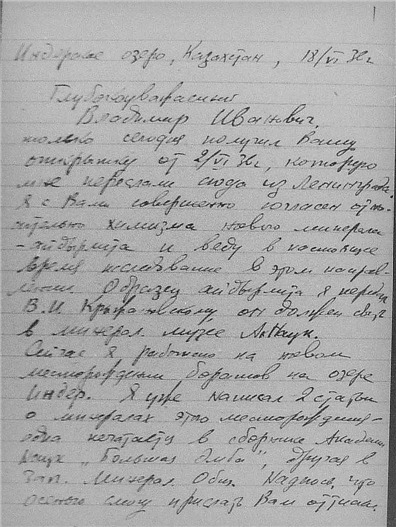 1
Индерское озеро, Казахстан, 18/VI 36г
Глубокоуважаемый
Владимир Иванович,
только сегодня получил Вашу
открытку от 2/VI 36г, которую
мне переслали сюда из Ленинграда.
Я с Вами совершенно согласен относ-
ительно химизма нового минерала
- айдырлита и веду в настоящее
время исследование в этом направ-
лении. Образец айдырлита я передал
В.И. Крыжановскому он должен быть
в минерал. музее Ак. Наук.
Сейчас я работаю на новом
месторождении боратов на озере
Индер. Я уже написал 2 статьи
о минералах этого месторождения -
одна печатается в сборнике Академии
Наук „Большая Эмба", другая в
Зап. Минерал. Общ. Надеюсь, что
осенью смогу прислать Вам оттиски.